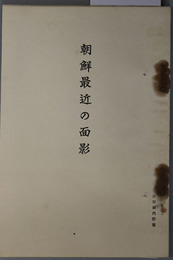 朝鮮最近の面影